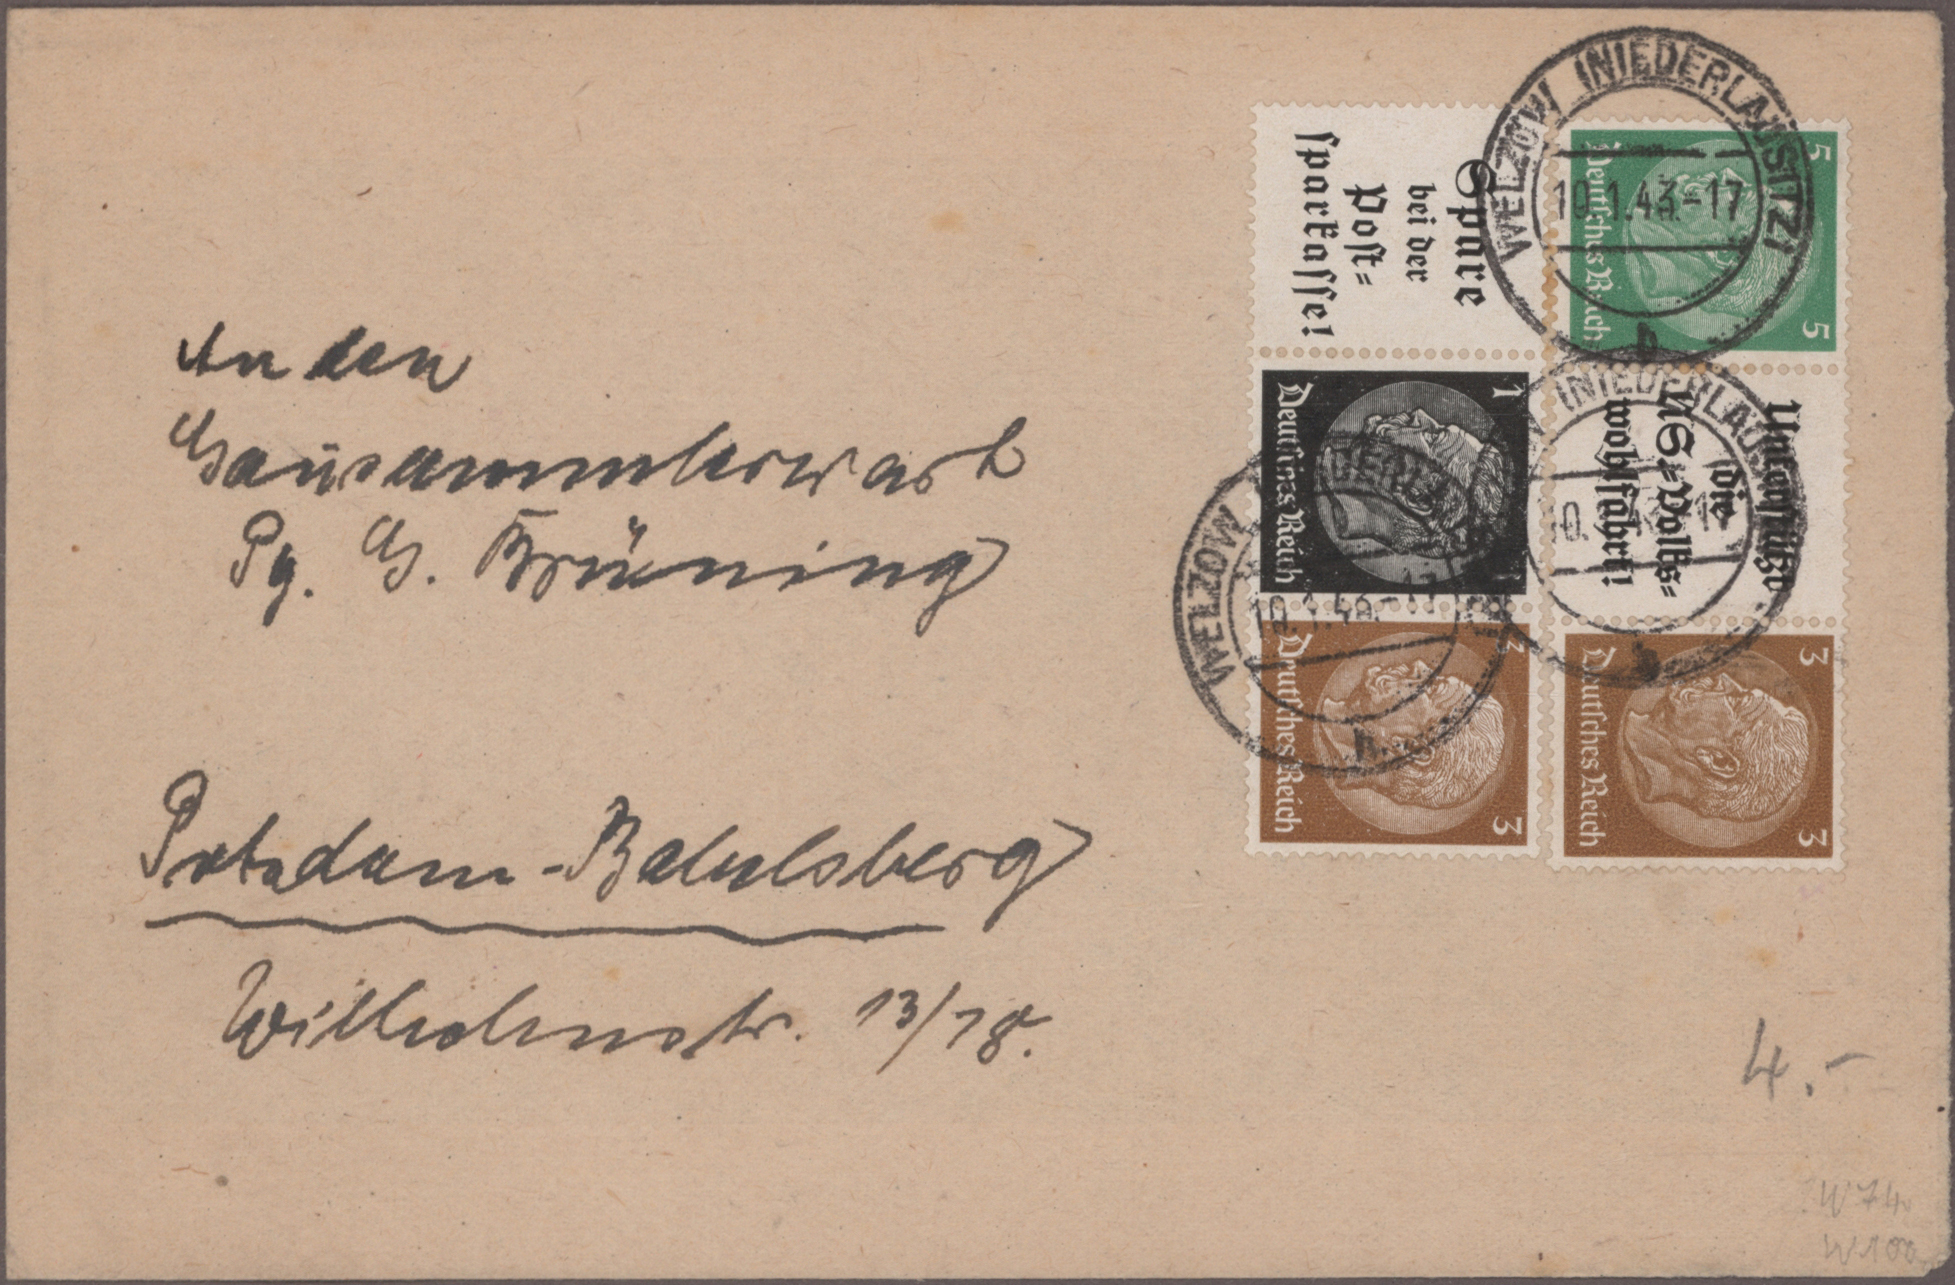 An den
Gausammlerwart
Pg. G. Brüning
Potsdam-Babelsberg
Wilhelmstr. 13/18.
Spare
bei der
Post=
sparkasse!
5
5
Deutsches Reich
WELZOW (NIEDERLAUSITZ)
10.1.43.-17
a
1
Deutsches Reich
Unterstütze
die
NS=Volks=
wohlfahrt!
(NIEDERLAUSITZ)
3
3
Deutsches Reich
WELZOW
10.1.43.-17
3
3
Deutsches Reich
4.-
W 74
W 100